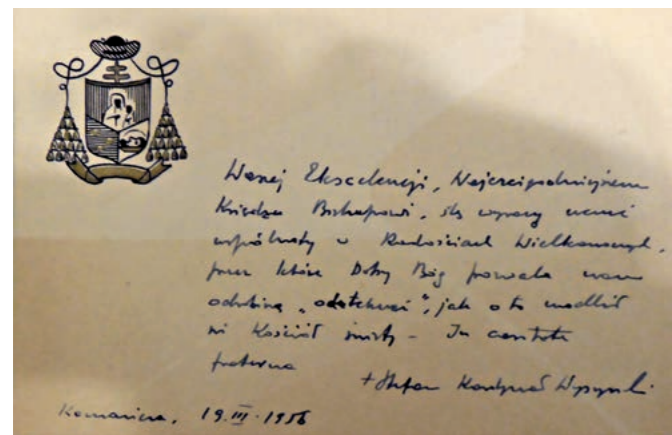 Waszej Ekscelencji, Najczcigodniejszemu
Księdzu Biskupowi, ślę wyrazy
wspólnoty w Radościach Wielkanocnych,
przez które Dobry Bóg pozwala nam
odrobinę "odetchnąć", jak o to modlił
się Kościół święty – In caritate
fraterna
+ Stefan Kardynał Wyszyński
Komańcza, 19.III.1956